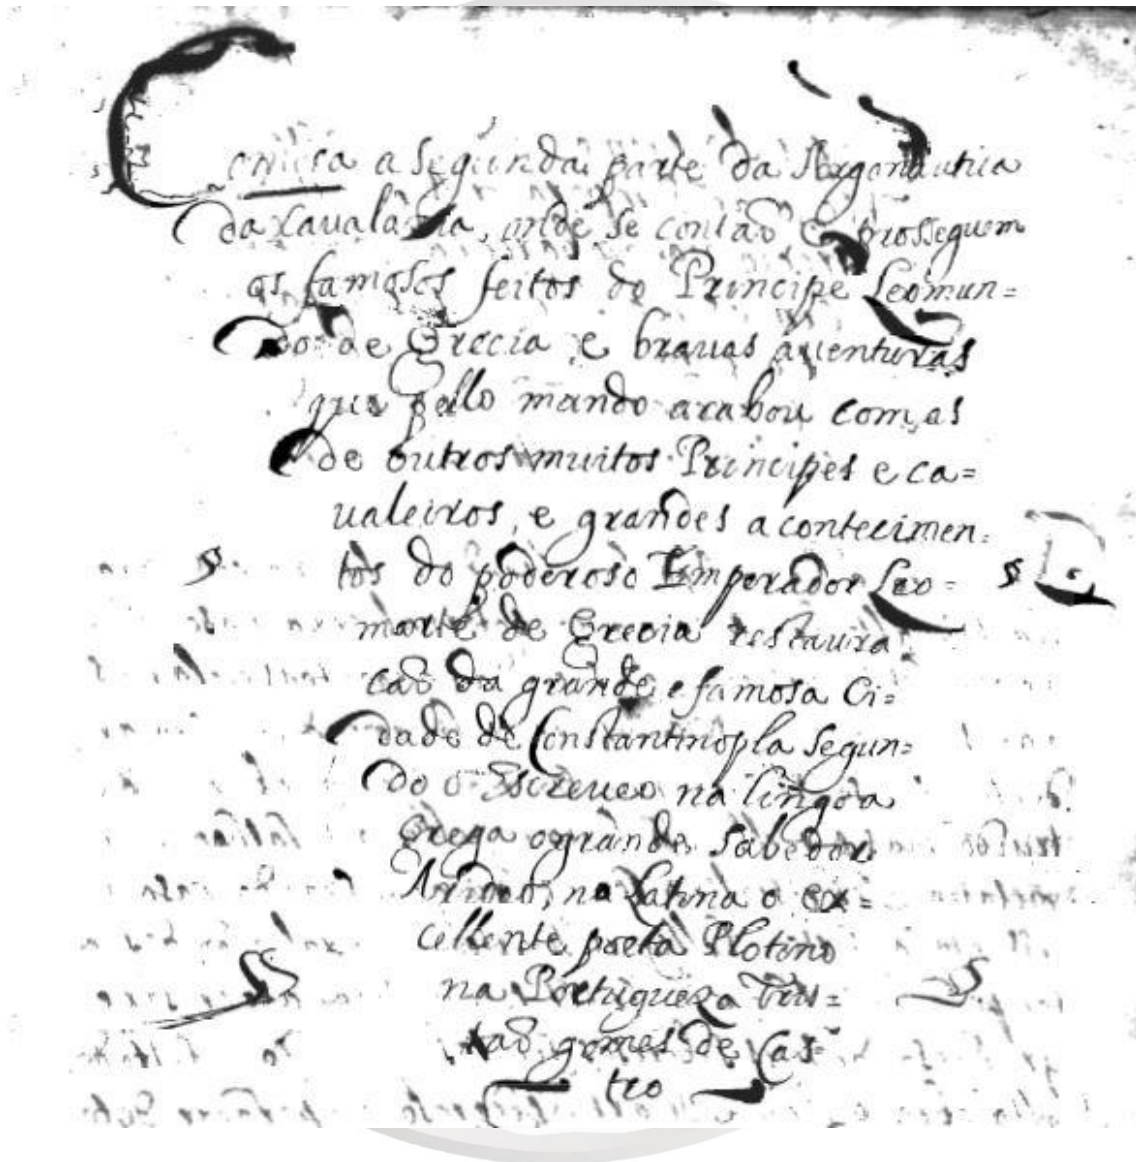 Comesa a Segunda parte da Argonautica
da Caualaria, onde se contaõ e prosseguem
os famosos feitos do Principe Leomun=
do de Grecia e brauas auenturas
que pello mando acabou com as
de outros muitos Principes e ca=
ualeiros, e grandes acontecimen=
tos do poderoso Emperador Leo=
marte de Grecia restaura
caõ da grande e famosa Ci=
dade de Constantinopla segun=
do o Escreueo na lingoa
Grega o grande Sabedor
na Latina o ex=
cellente poeta Plotino
na Portugueza Tris=
taõ gomes de Cas=
tro